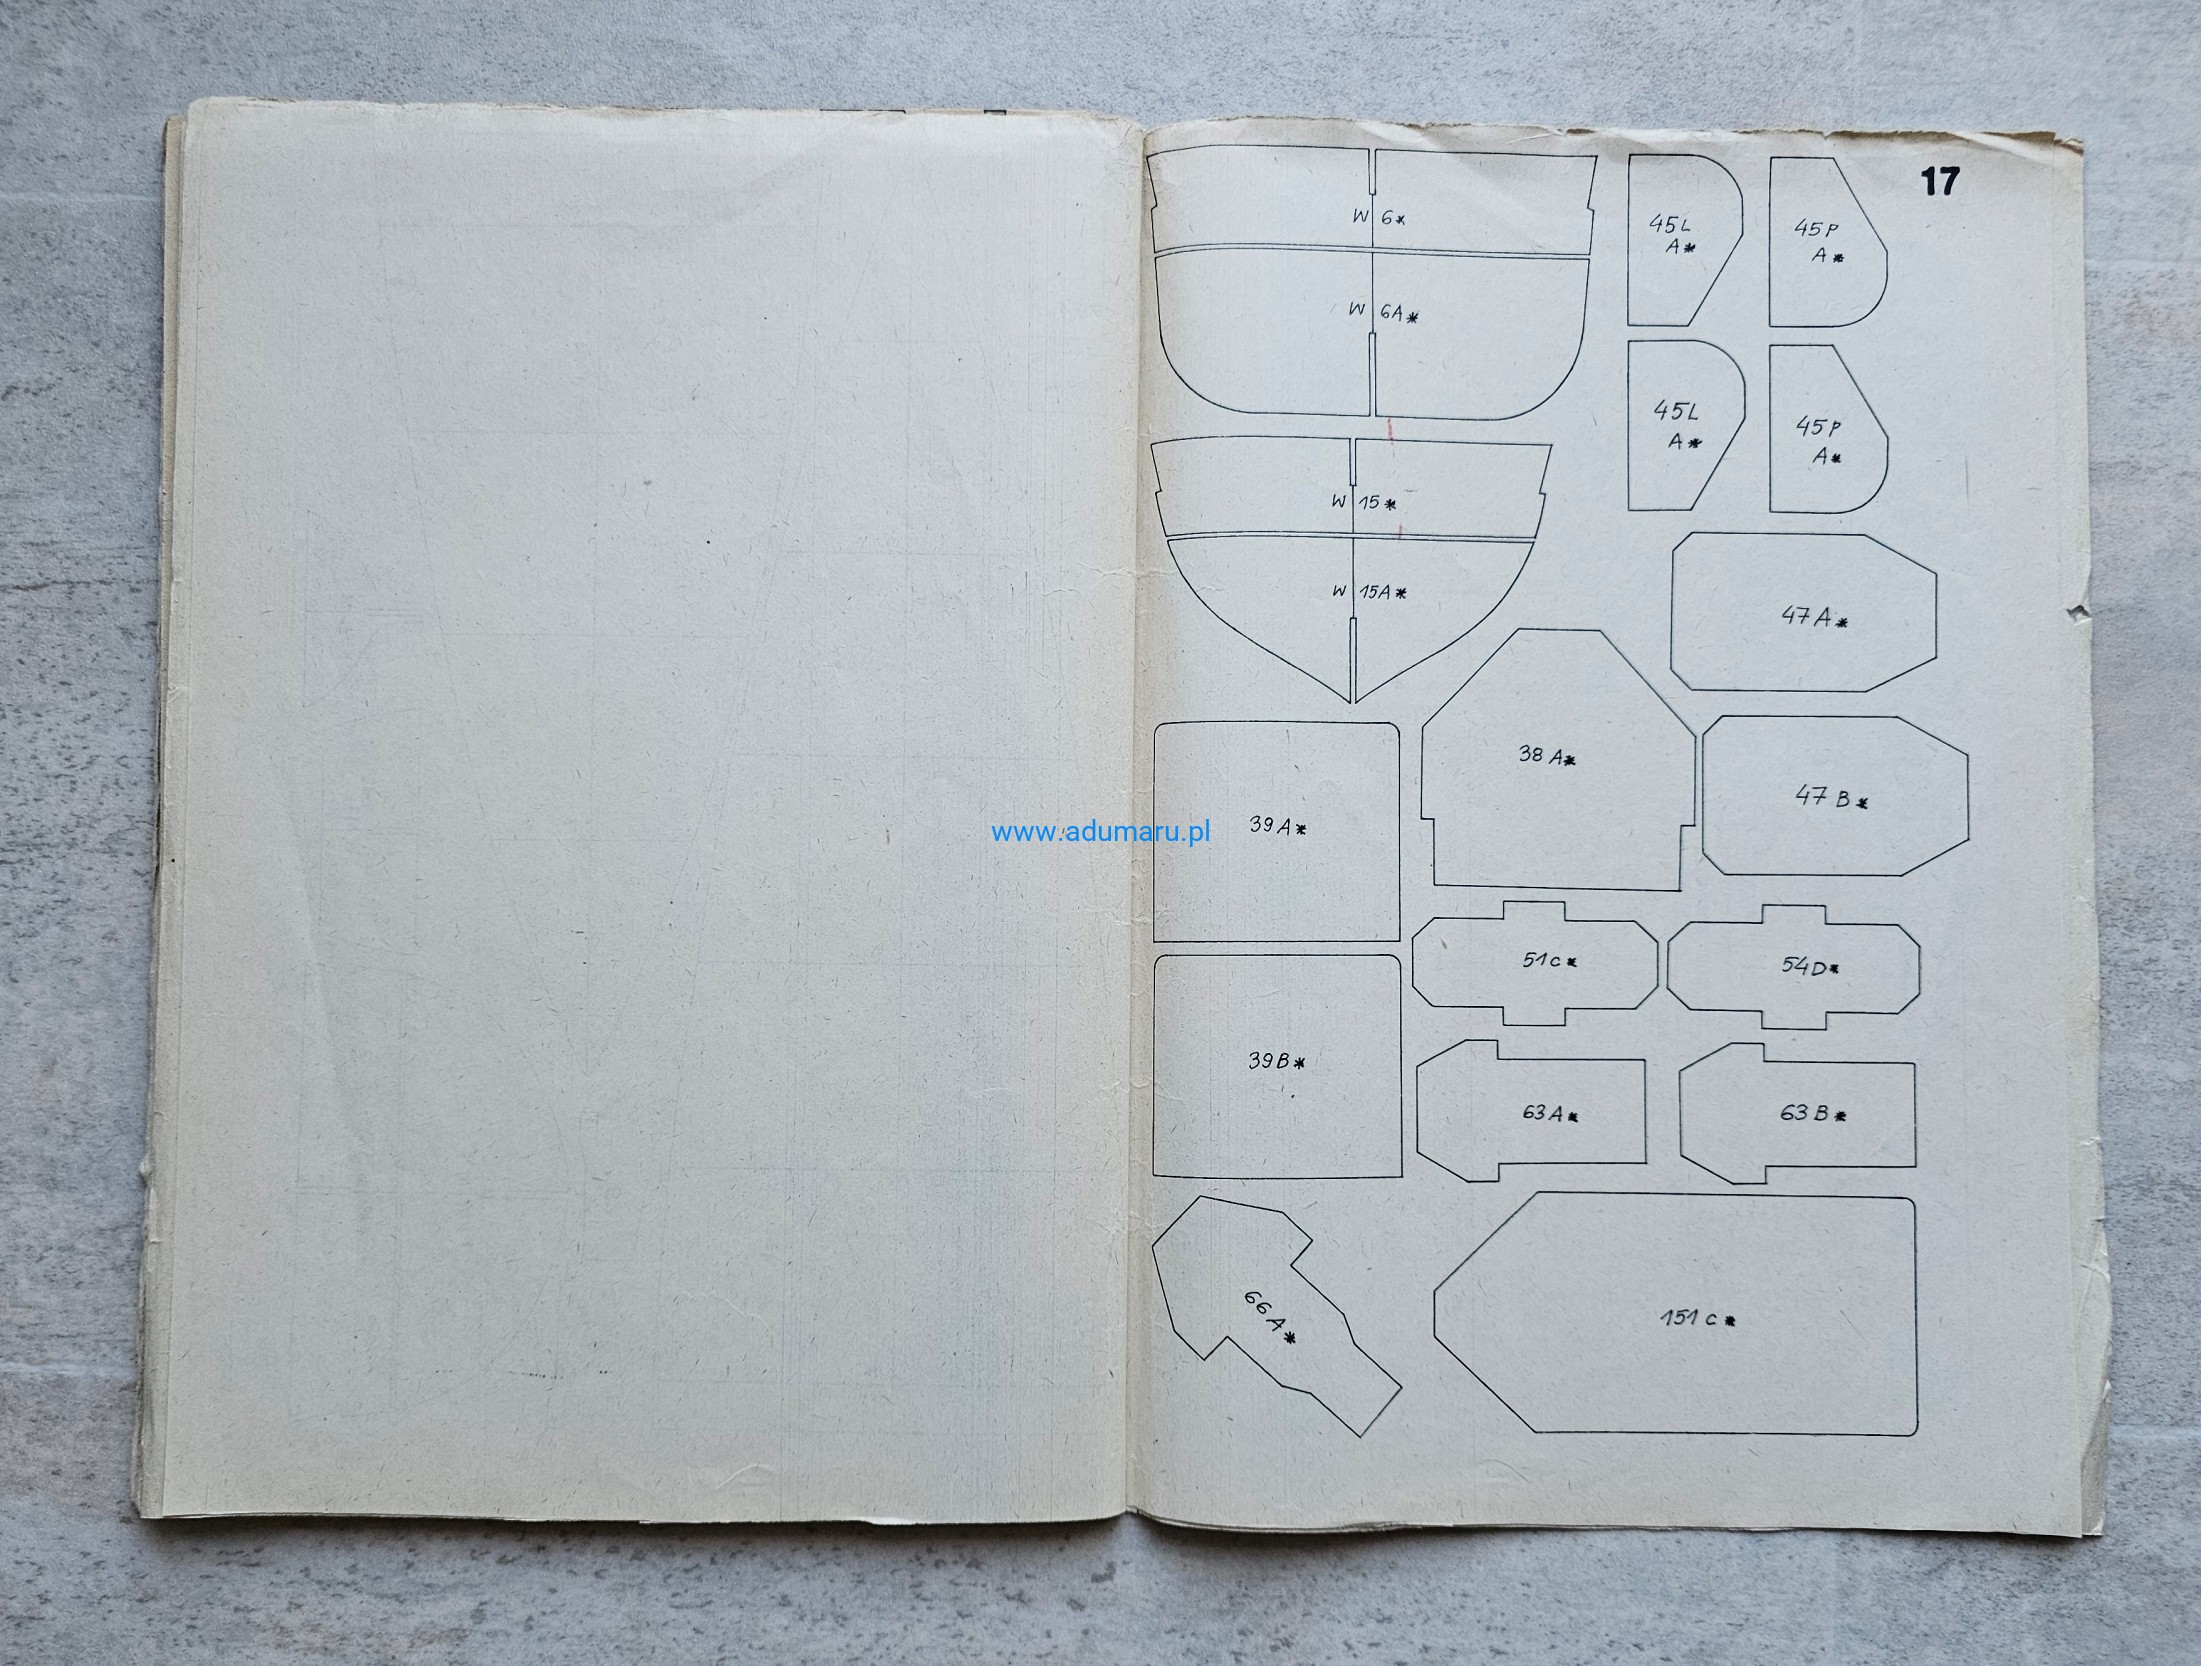 17
W 6*
45L
A*
45P
A*
W 6A*
45L
A*
45P
A*
W 15*
W 15A*
47A*
38A*
47B*
39A*
www.adumaru.pl
51c*
54D*
39B*
63A*
63B*
66A*
151c*